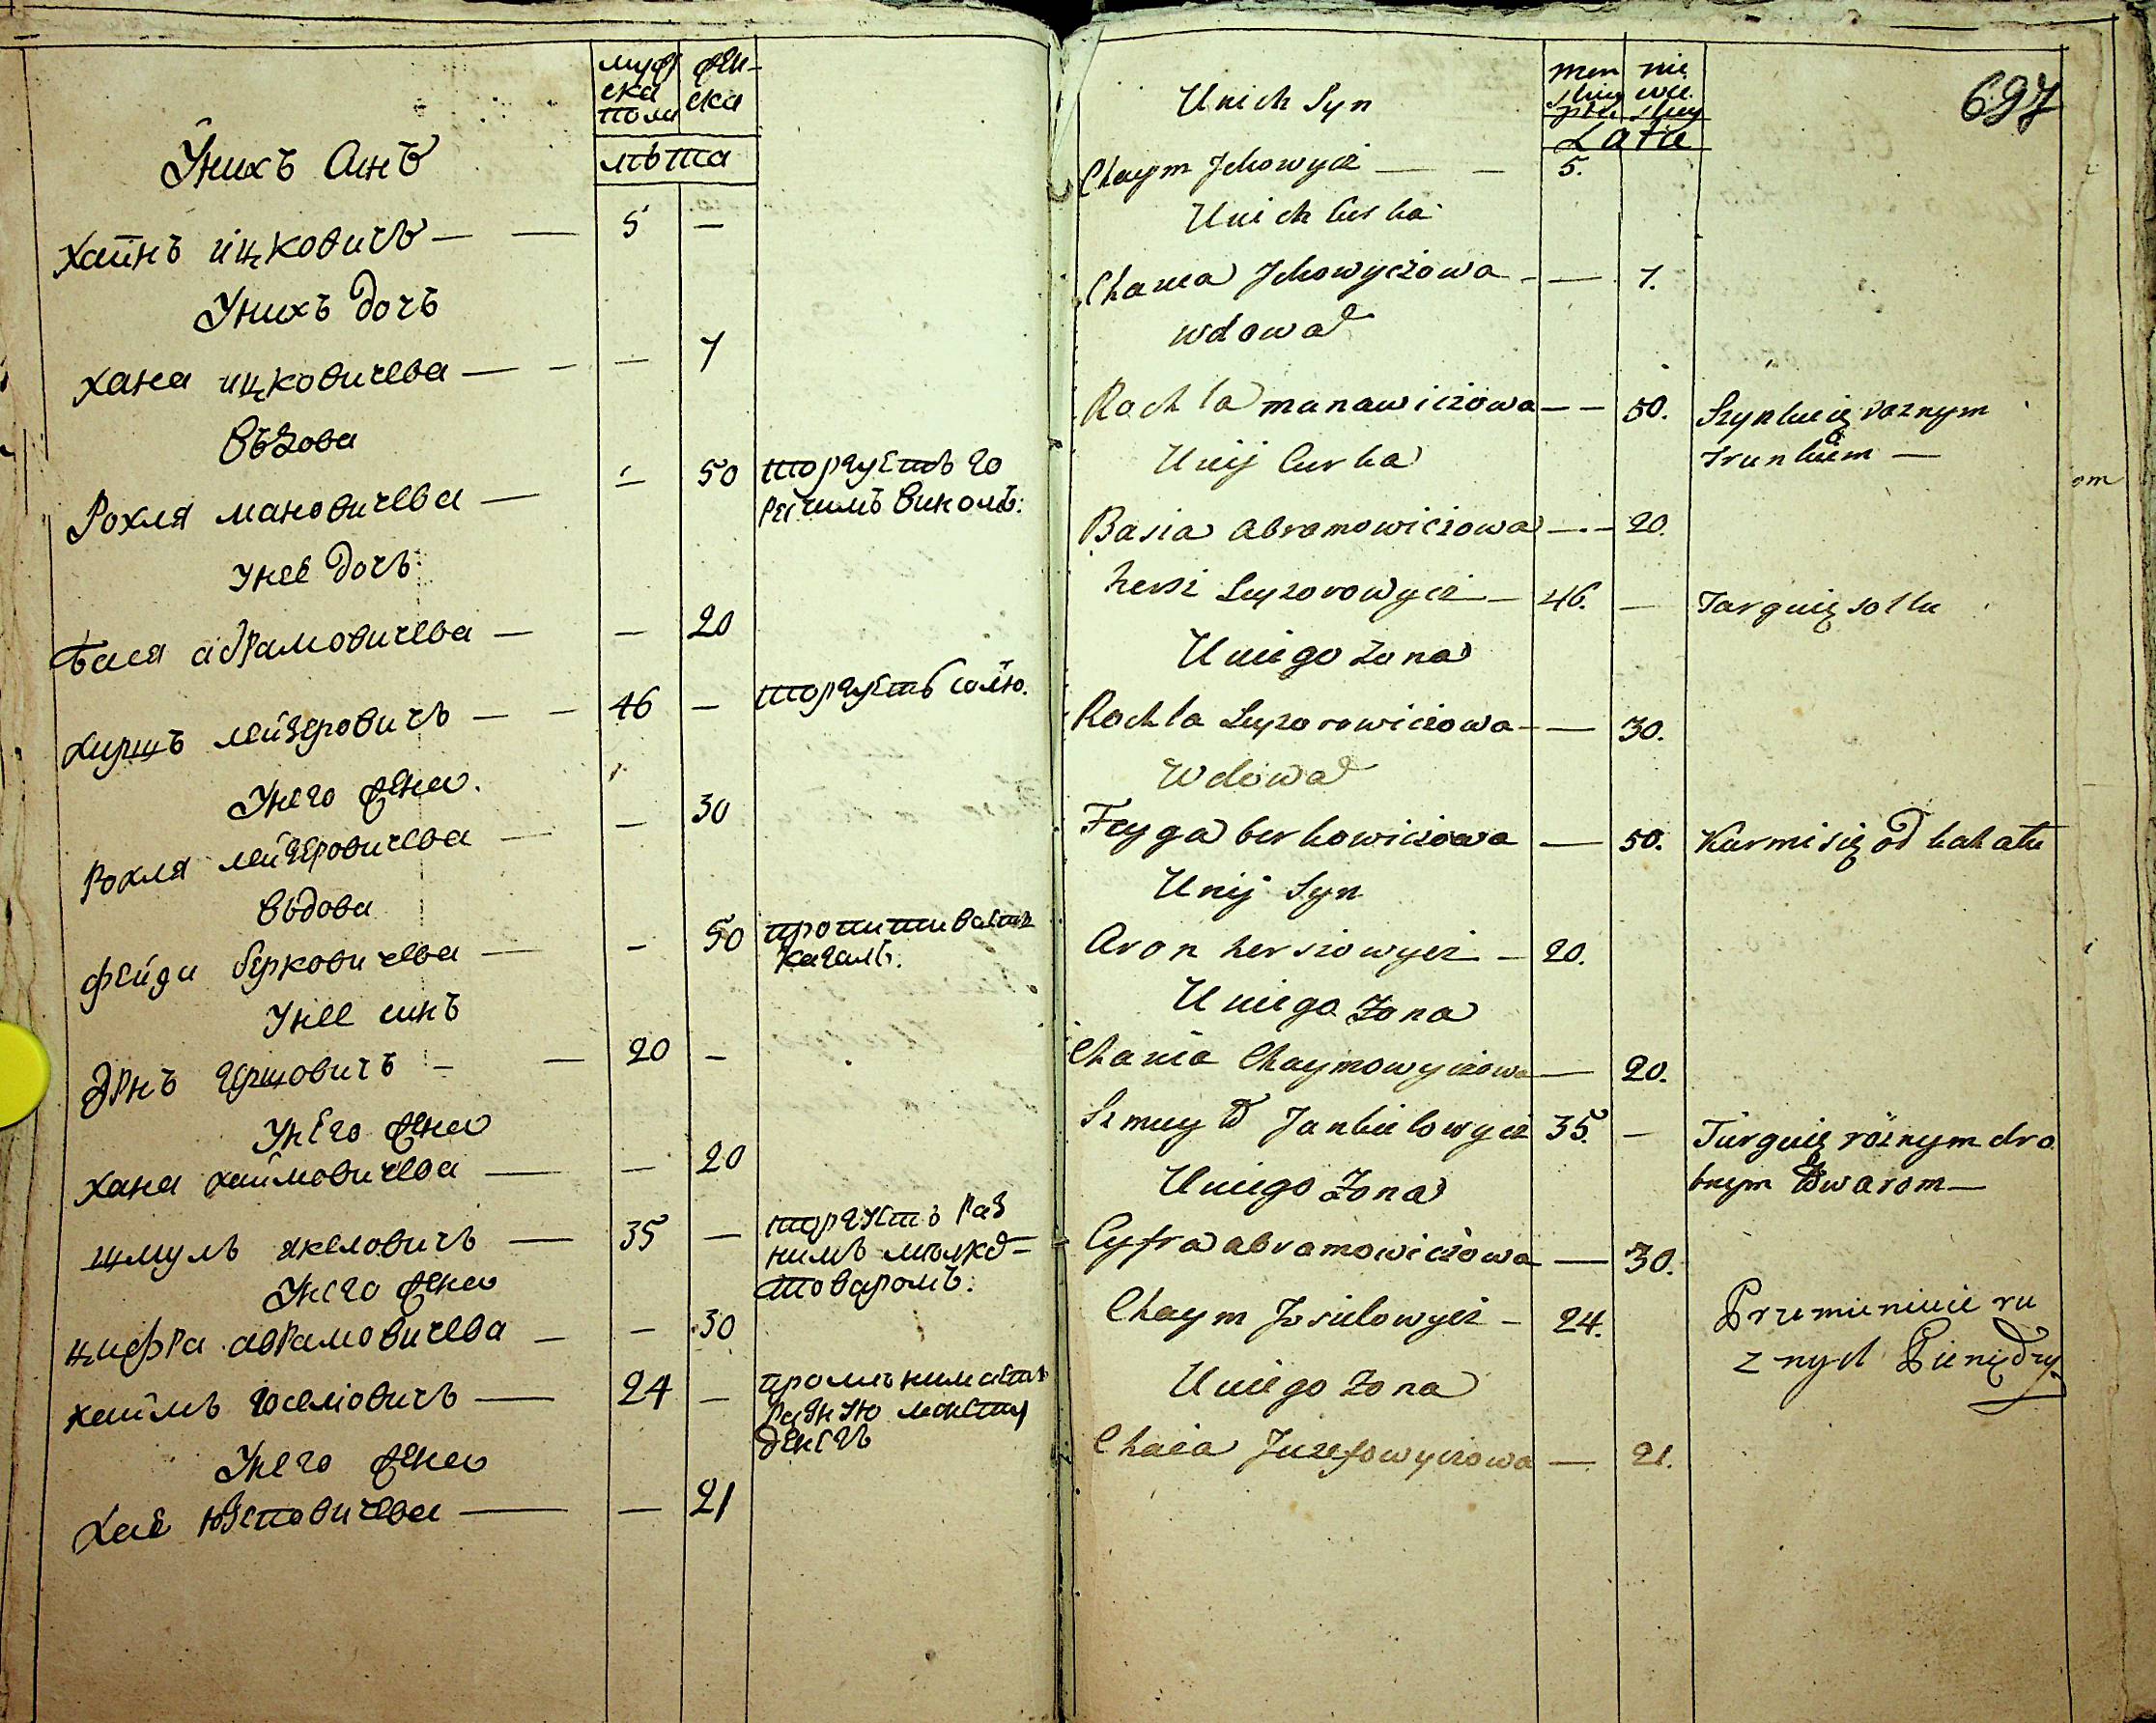 муж
ска
пола
жен-
ска
лѣта
Унихъ Синъ
Хаймъ ицковичъ — — 5 —
Унихъ дочъ
Хана ицковичева — — — 7
Въдова
Рохля мановичева — — 50 торгуетъ го
рачимъ виномъ:
Унее дочъ
Бася абрамовичева — — 20
Хиршъ лейзеровичъ — — 46 — торгуетъ солю.
Унего жена.
Рохля лейзеровичева — — 30
Въдова
Фейга берковичева — — 50 пропитиваетъ
кагалъ.
Унее синъ
Арнъ гершовичъ — — 20 —
Унего жена
Хана хаймовичева — — 20
Шмулъ якеловичъ — 35 — торгуетъ раз
нимъ мѣлко-
товаромъ:
Унего жена
Цифра аврамовичева — — 30
Хаймъ иоселіовичъ — 24 — промѣниметъ
разную монету
денегъ
Унего жена
Хая юзеповичева — — 21
697
Unich Syn
Latu
Chaym Jckowycz — — 5.
Unich Curka
Chana Jckowyczowa — — 7.
wdowa
Rochla manawiczowa — — 50. Szynkuię roznym
trunkiem —
Uniy Curka
Basia abramowiczowa — — 20.
hersz Leyzorowycz — 46. — Targuię sollu
Uniego Zona
Rochla Leyzorowiczowa — — 30.
Wdowa
Feyga berkowiczowa — 50. Karmi się od kahału
Unij Syn
Aron herszowycz — 20.
Uniego Zona
Chania Chaymowyczowa — 20.
Szmuył Jankielowycz 35. — Targuię róźnym dro
bnym towarom —
Uniego Zona
Cyfra abramowiczowa — 30.
Chaym Josielowycz — 24. Przemieniuie ru
znych Pieniędzy
Uniego Zona
Chaia Juzefowyczowa — 21.